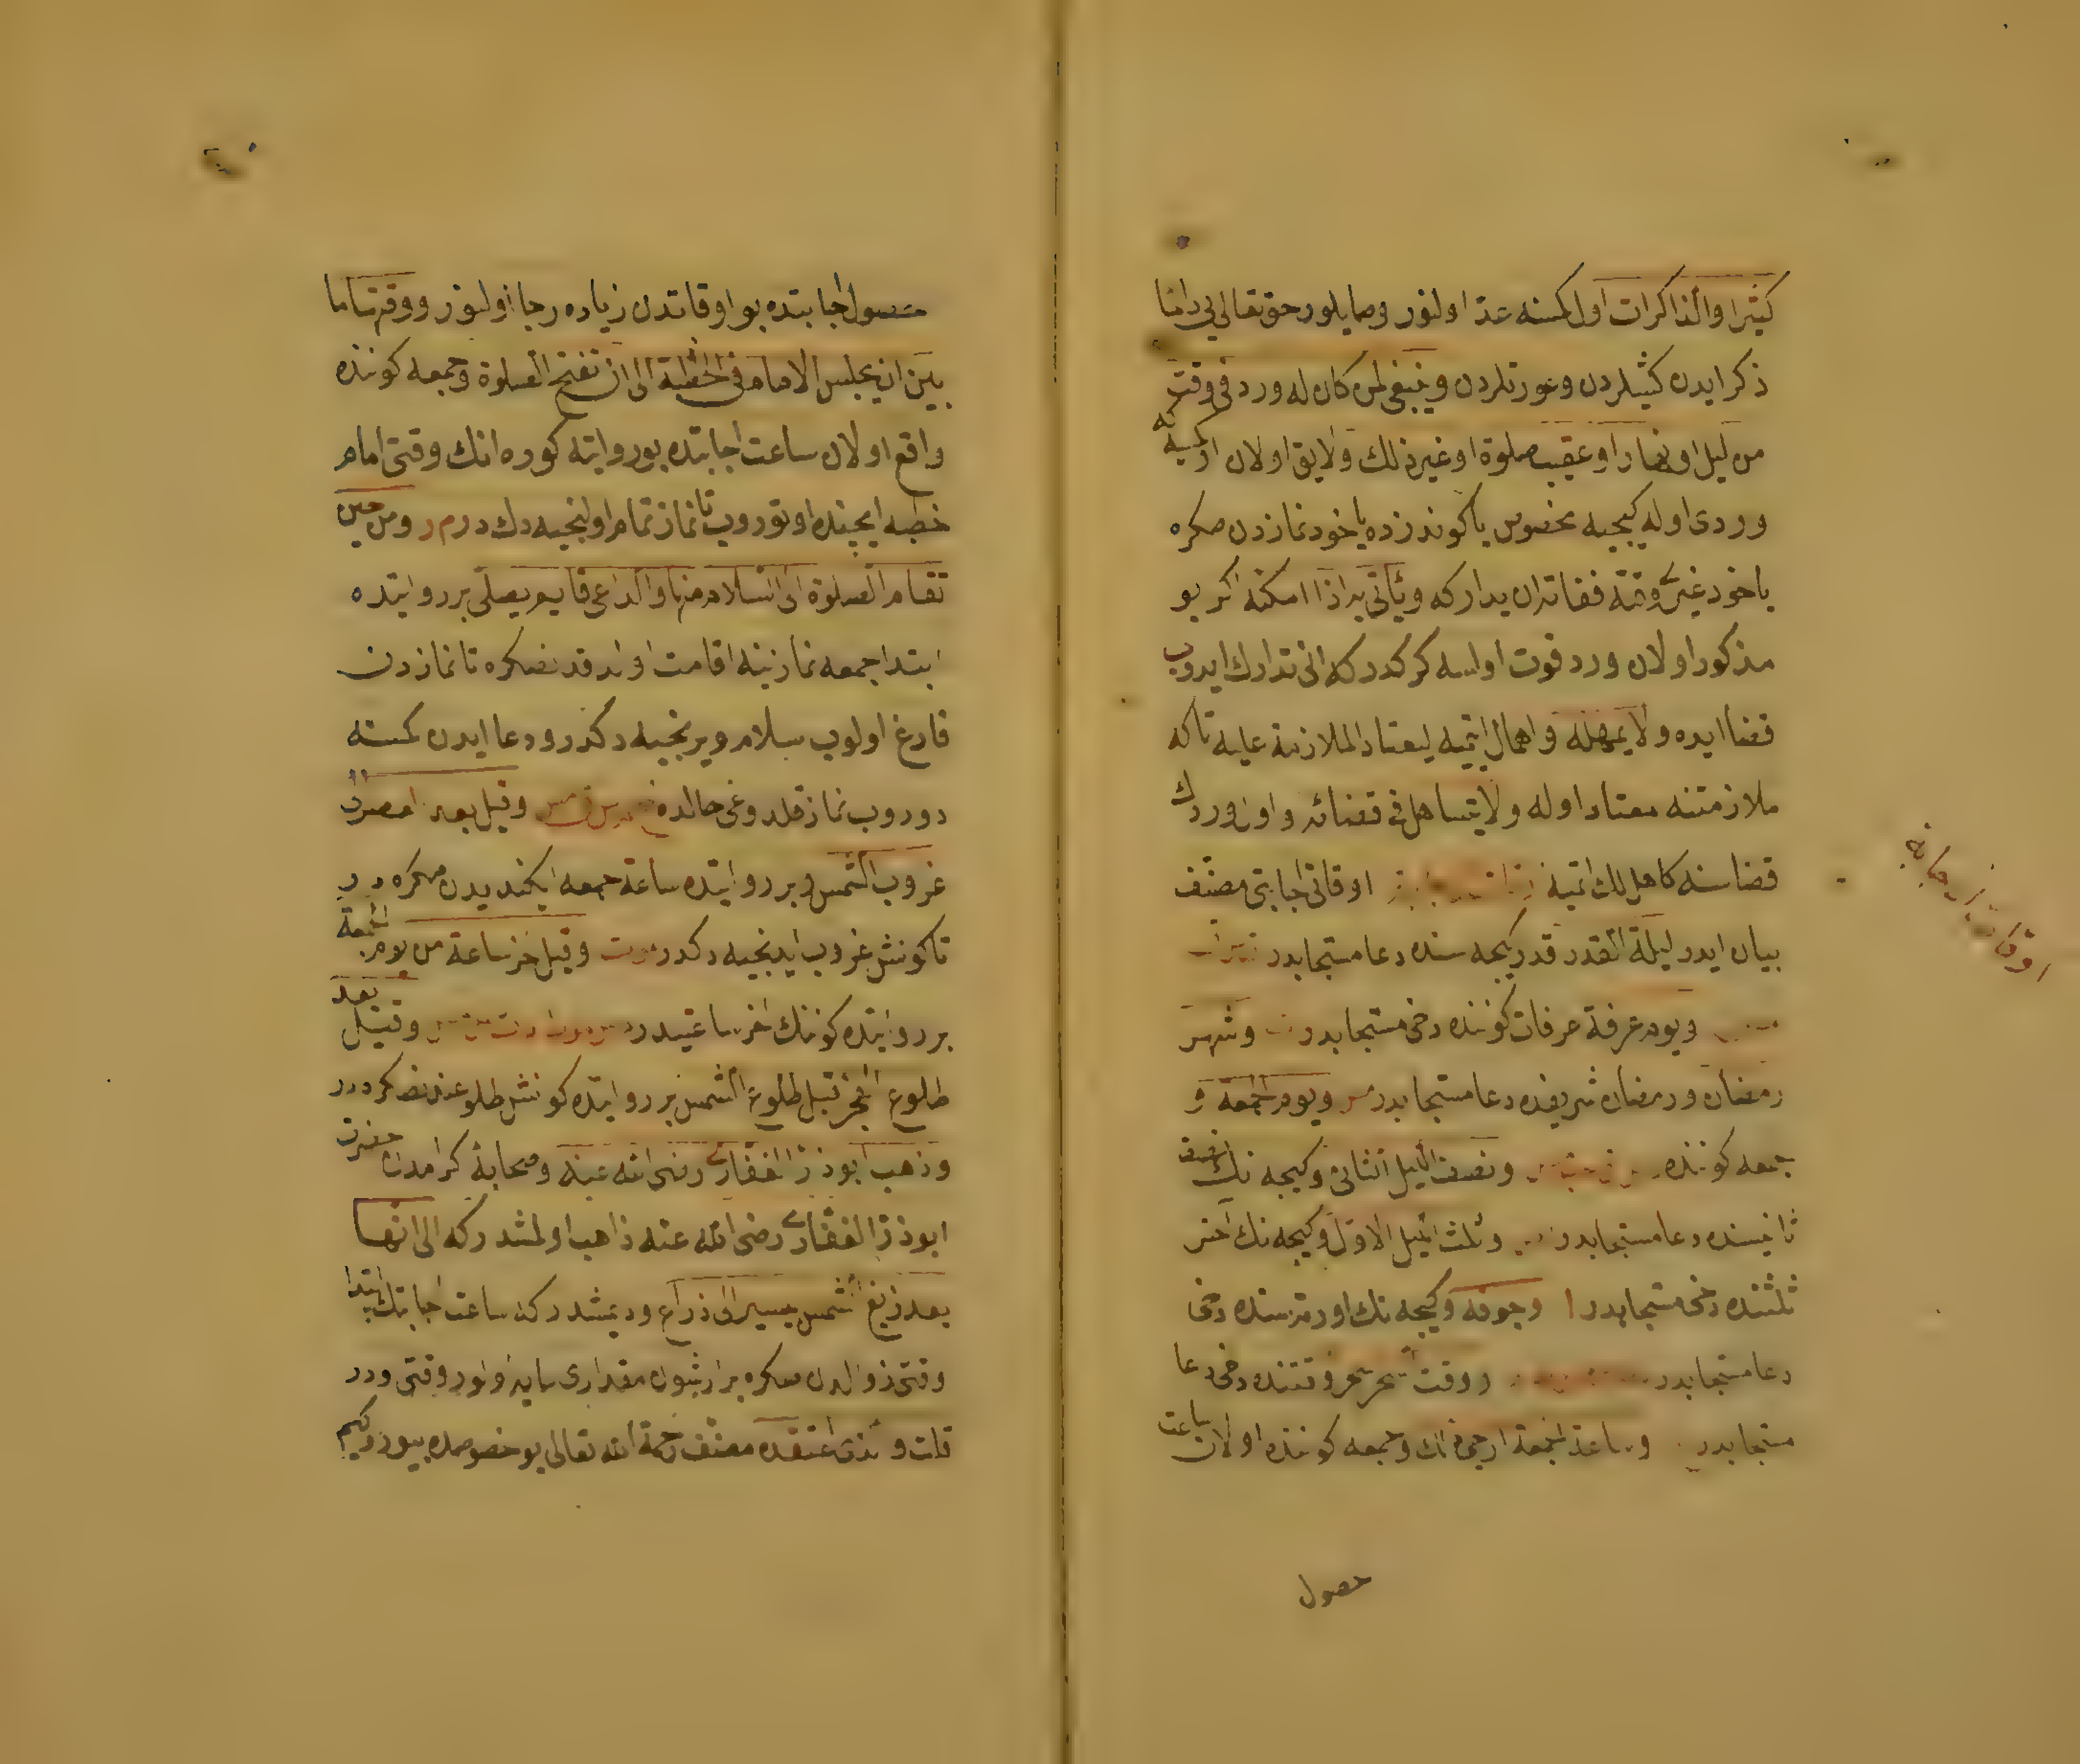 كثيرا والذاكرات اول كمسنه عد اولنور وصايلور حق تعالى يى دائما
ذكر ايدن كشيلردن وعورتلردن وينبغى لمن كان له ورد فى وقت
من ليل او نهار او عقيب صلوة او غير ذلك ولايق اولان اول كمسيه كه
وردى اوله كيجيه مخصوص يا كوندزده يا خود نمازدن صكره
يا خود غيرى وقتده ففاته ان يداركه ويأتى به اذا امكنه اكر بو
مذكور اولان ورد فوت اولسه كركدر كه انى تدارك ايدوب
قضا ايده ولا يمهله واهمال اتميه ليعتاد الملازمة عليه تا كه
ملازمتنه معتاد اوله ولا يتساهل فى قضائه واول وردك
قضاسنه كاهللك اتميه اوقاتى اجابتى مصنف
بيان ايدر ليلة القدر قدر كيجه سنده دعا مستجابدر
ويوم عرفة عرفات كوننده دخى مستجابدر وشهر
رمضان ورمضان شريفده دعا مستجابدر ويوم الجمعة و
جمعه كوننده ونصف الليل الثانى وكيجه نك نصف
ثانيسنده دعا مستجابدر وثلث الليل الاول وكيجه نك آخر
ثلثنده دخى مستجابدر وجوفه وكيجه نك اورتهسنده دخى
دعا مستجابدر ووقت السحر سحر وقتنده دخى دعا
مستجابدر وساعة الجمعة ارجى ذلك وجمعه كوننده اولان ساعت
حصول
حصول اجابتده بو اوقاتدن زياده رجا اولنور ووقتها ما
بين ان يجلس الامام فى الخطبة الى ان تفتح الصلوة وجمعه كوننده
واقع اولان ساعت اجابتده بو روايته كوره انك وقتى امام
خطبه ايچنده اوتوروب تا نماز تمام اولنجيه دكدر م د ومن حين
تقام الصلوة الى السلام منها والداعى قايم يصلى بر روايتده
ابتدا جمعه نمازينه اقامت اولندقدنصكره تا نمازدن
فارغ اولوب سلام ويرنجيه دكدر ودعا ايدن كمسنه
دوروب نماز قلدوغى حالده وقيل بعد العصر الى
غروب الشمس وبر روايتده ساعة جمعه ايكنديدن صكره در
تا كونش غروب ايدنجيه دكدر موت وقيل آخر ساعة من يوم الجمعة
بر روايتده كوننك آخر ساعتيدر وقيل بعد
طلوع الفجر قبل طلوع الشمس بر روايتده كونش طلوعندنصكره در
وذهب ابو ذر الغفارى رضى الله عنه وصحابۀ كرامدن حضرت
ابو ذر الغفارى رضى الله عنه ذاهب اولمشدر كه الى انها
بعد زيغ الشمس بيسير الى ذراع وديمشدر كه ساعت اجابتك ابتدا
وقتى زوالدن صكره بر ارشون مقدارى سايه اولور وقتى ودر
قلت والذى اعتقده مصنف رحمة الله تعالى بو خصوصده بيورر كيم